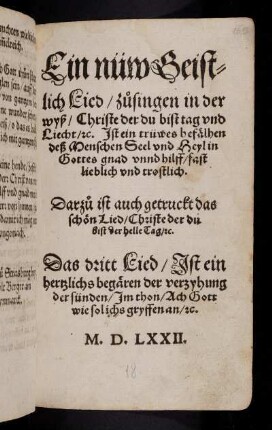 Ein nüw Geist-
lich Lied / zůsingen in der
wyß / Christe der du bist tag vnd
Liecht / ꝛc. Ist ein trüwes befälhen
deß Menschen Seel vnd Heyl in
Gottes gnad vnnd hilff / fast
lieblich vnd trostlich.
Darzů ist auch getruckt das
schön Lied / Christe der du
bist der helle Tag / ꝛc.
Das dritt Lied / Ist ein
hertzlichs begären der verzyhung
der sünden / Im thon / Ach Gott
wie sol ichs gryffen an / ꝛc.
M. D. LXXII.
18